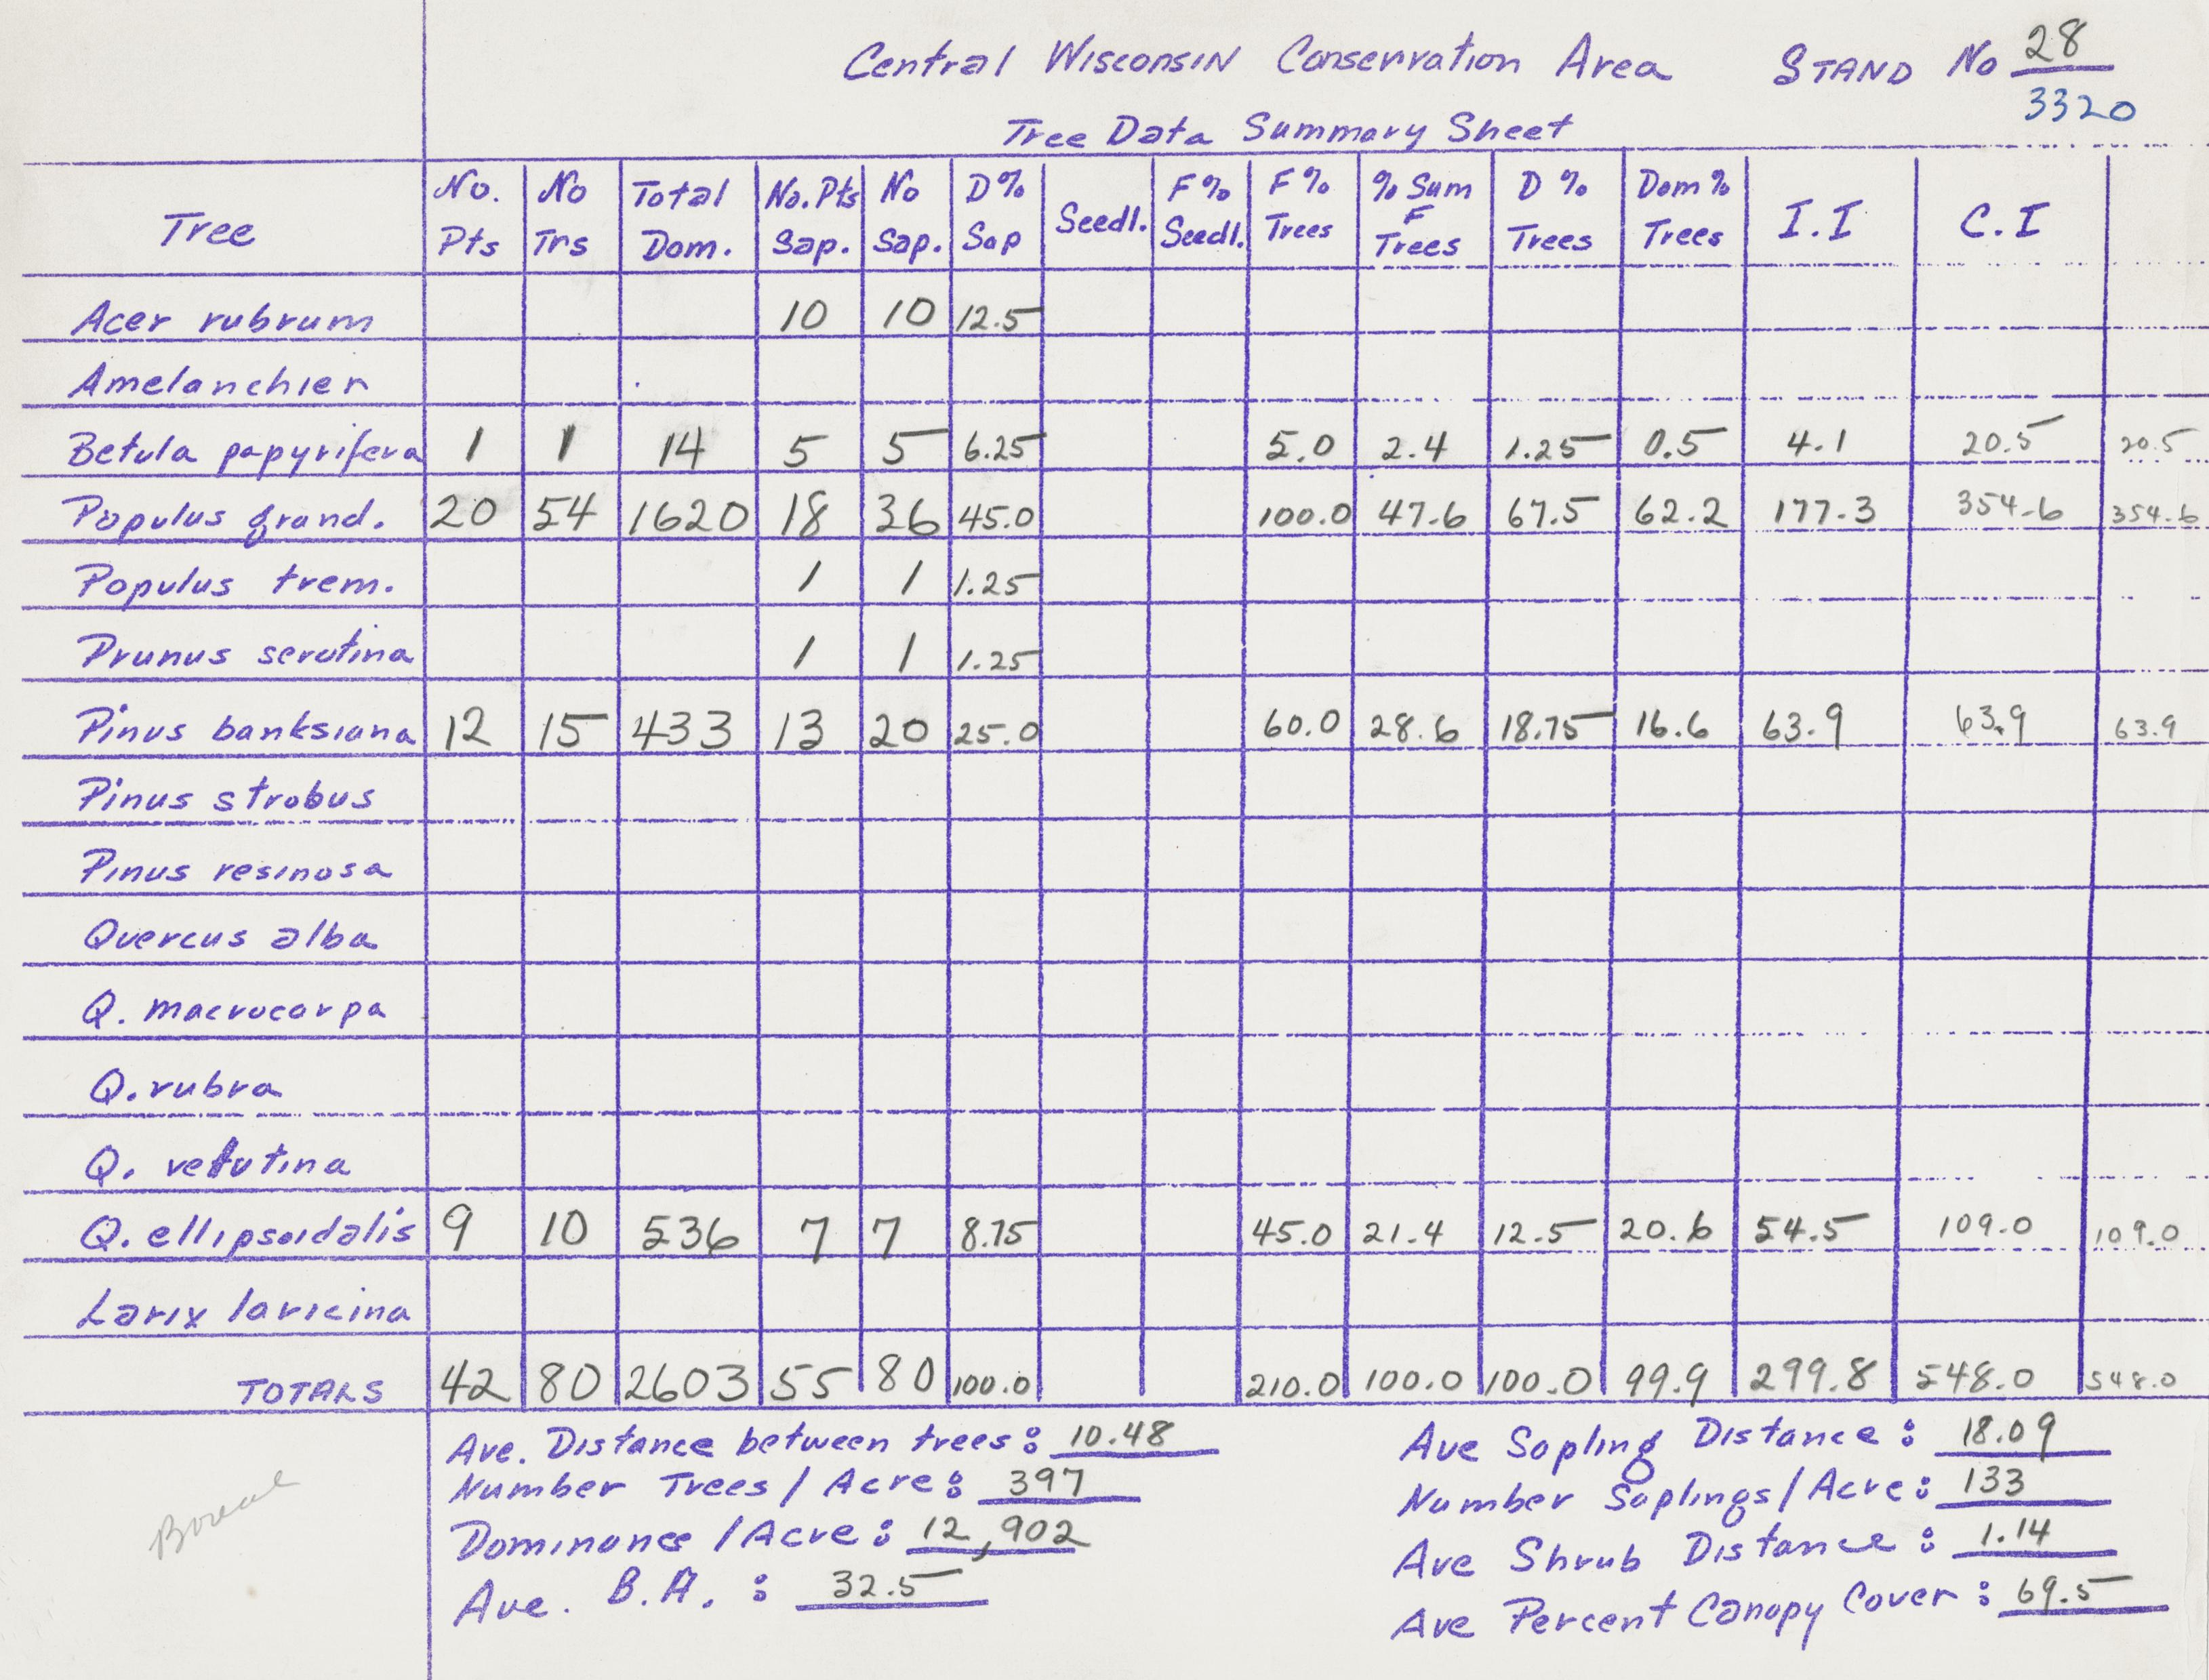 Central Wisconsin Conservation Area STAND No 28
3320
Tree Data Summary Sheet
Tree | No. Pts | No Trs | Total Dom. | No. Pts Sap. | No Sap. | D % Sap | Seedl. | F % Seedl. | F % Trees | % Sum F Trees | D % Trees | Dom % Trees | I.I | C.I
Acer rubrum 10 10 12.5
Amelanchier
Betula papyrifera 1 1 14 5 5 6.25 5.0 2.4 1.25 0.5 4.1 20.5 20.5
Populus grand. 20 54 1620 18 36 45.0 100.0 47.6 67.5 62.2 177.3 354.6 354.6
Populus trem. 1 1 1.25
Prunus serotina 1 1 1.25
Pinus banksiana 12 15 433 13 20 25.0 60.0 28.6 18.75 16.6 63.9 63.9 63.9
Pinus strobus
Pinus resinosa
Quercus alba
Q. macrocarpa
Q. rubra
Q. velutina
Q. ellipsoidalis 9 10 536 7 7 8.75 45.0 21.4 12.5 20.6 54.5 109.0 109.0
Larix laricina
TOTALS 42 80 2603 55 80 100.0 210.0 100.0 100.0 99.9 299.8 548.0 548.0
Ave. Distance between trees: 10.48
Number Trees / Acre: 397
Dominance / Acre: 12,902
Ave. B.A. : 32.5
Ave Sapling Distance: 18.09
Number Saplings / Acre: 133
Ave Shrub Distance: 1.14
Ave Percent Canopy Cover: 69.5
Boreal